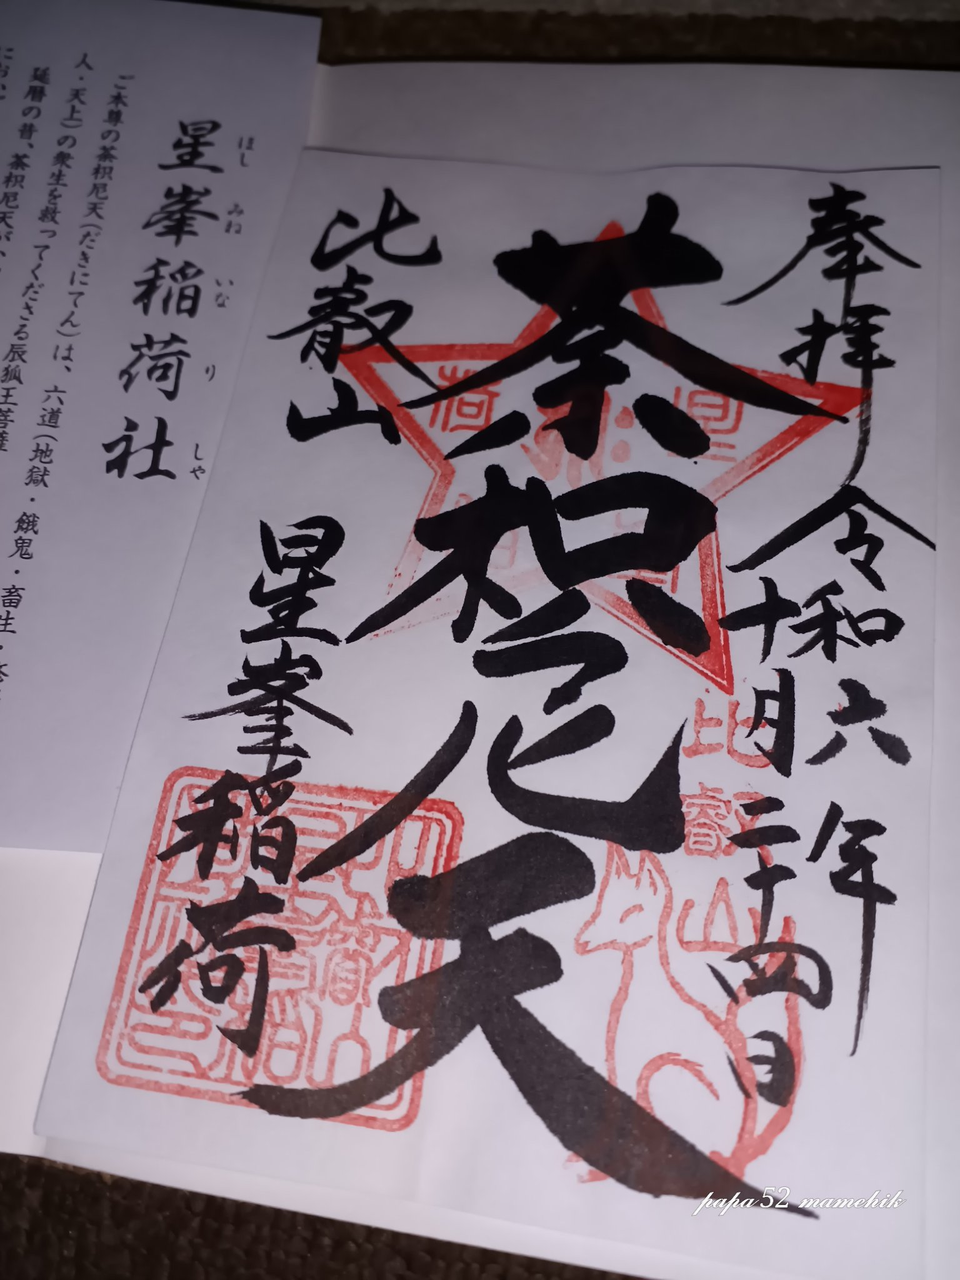 奉拝
令和六年
十月二十四日
荼枳尼天
比叡山
星峯稲荷
比叡山
星峯稲荷社
ほしみねいなりしゃ
ご本尊の荼枳尼天(だきにてん)は、六道(地獄・餓鬼・畜生・
人・天上)の衆生を救ってくださる辰狐王菩薩
延暦の昔、荼枳尼天が、
papa52 mamehik